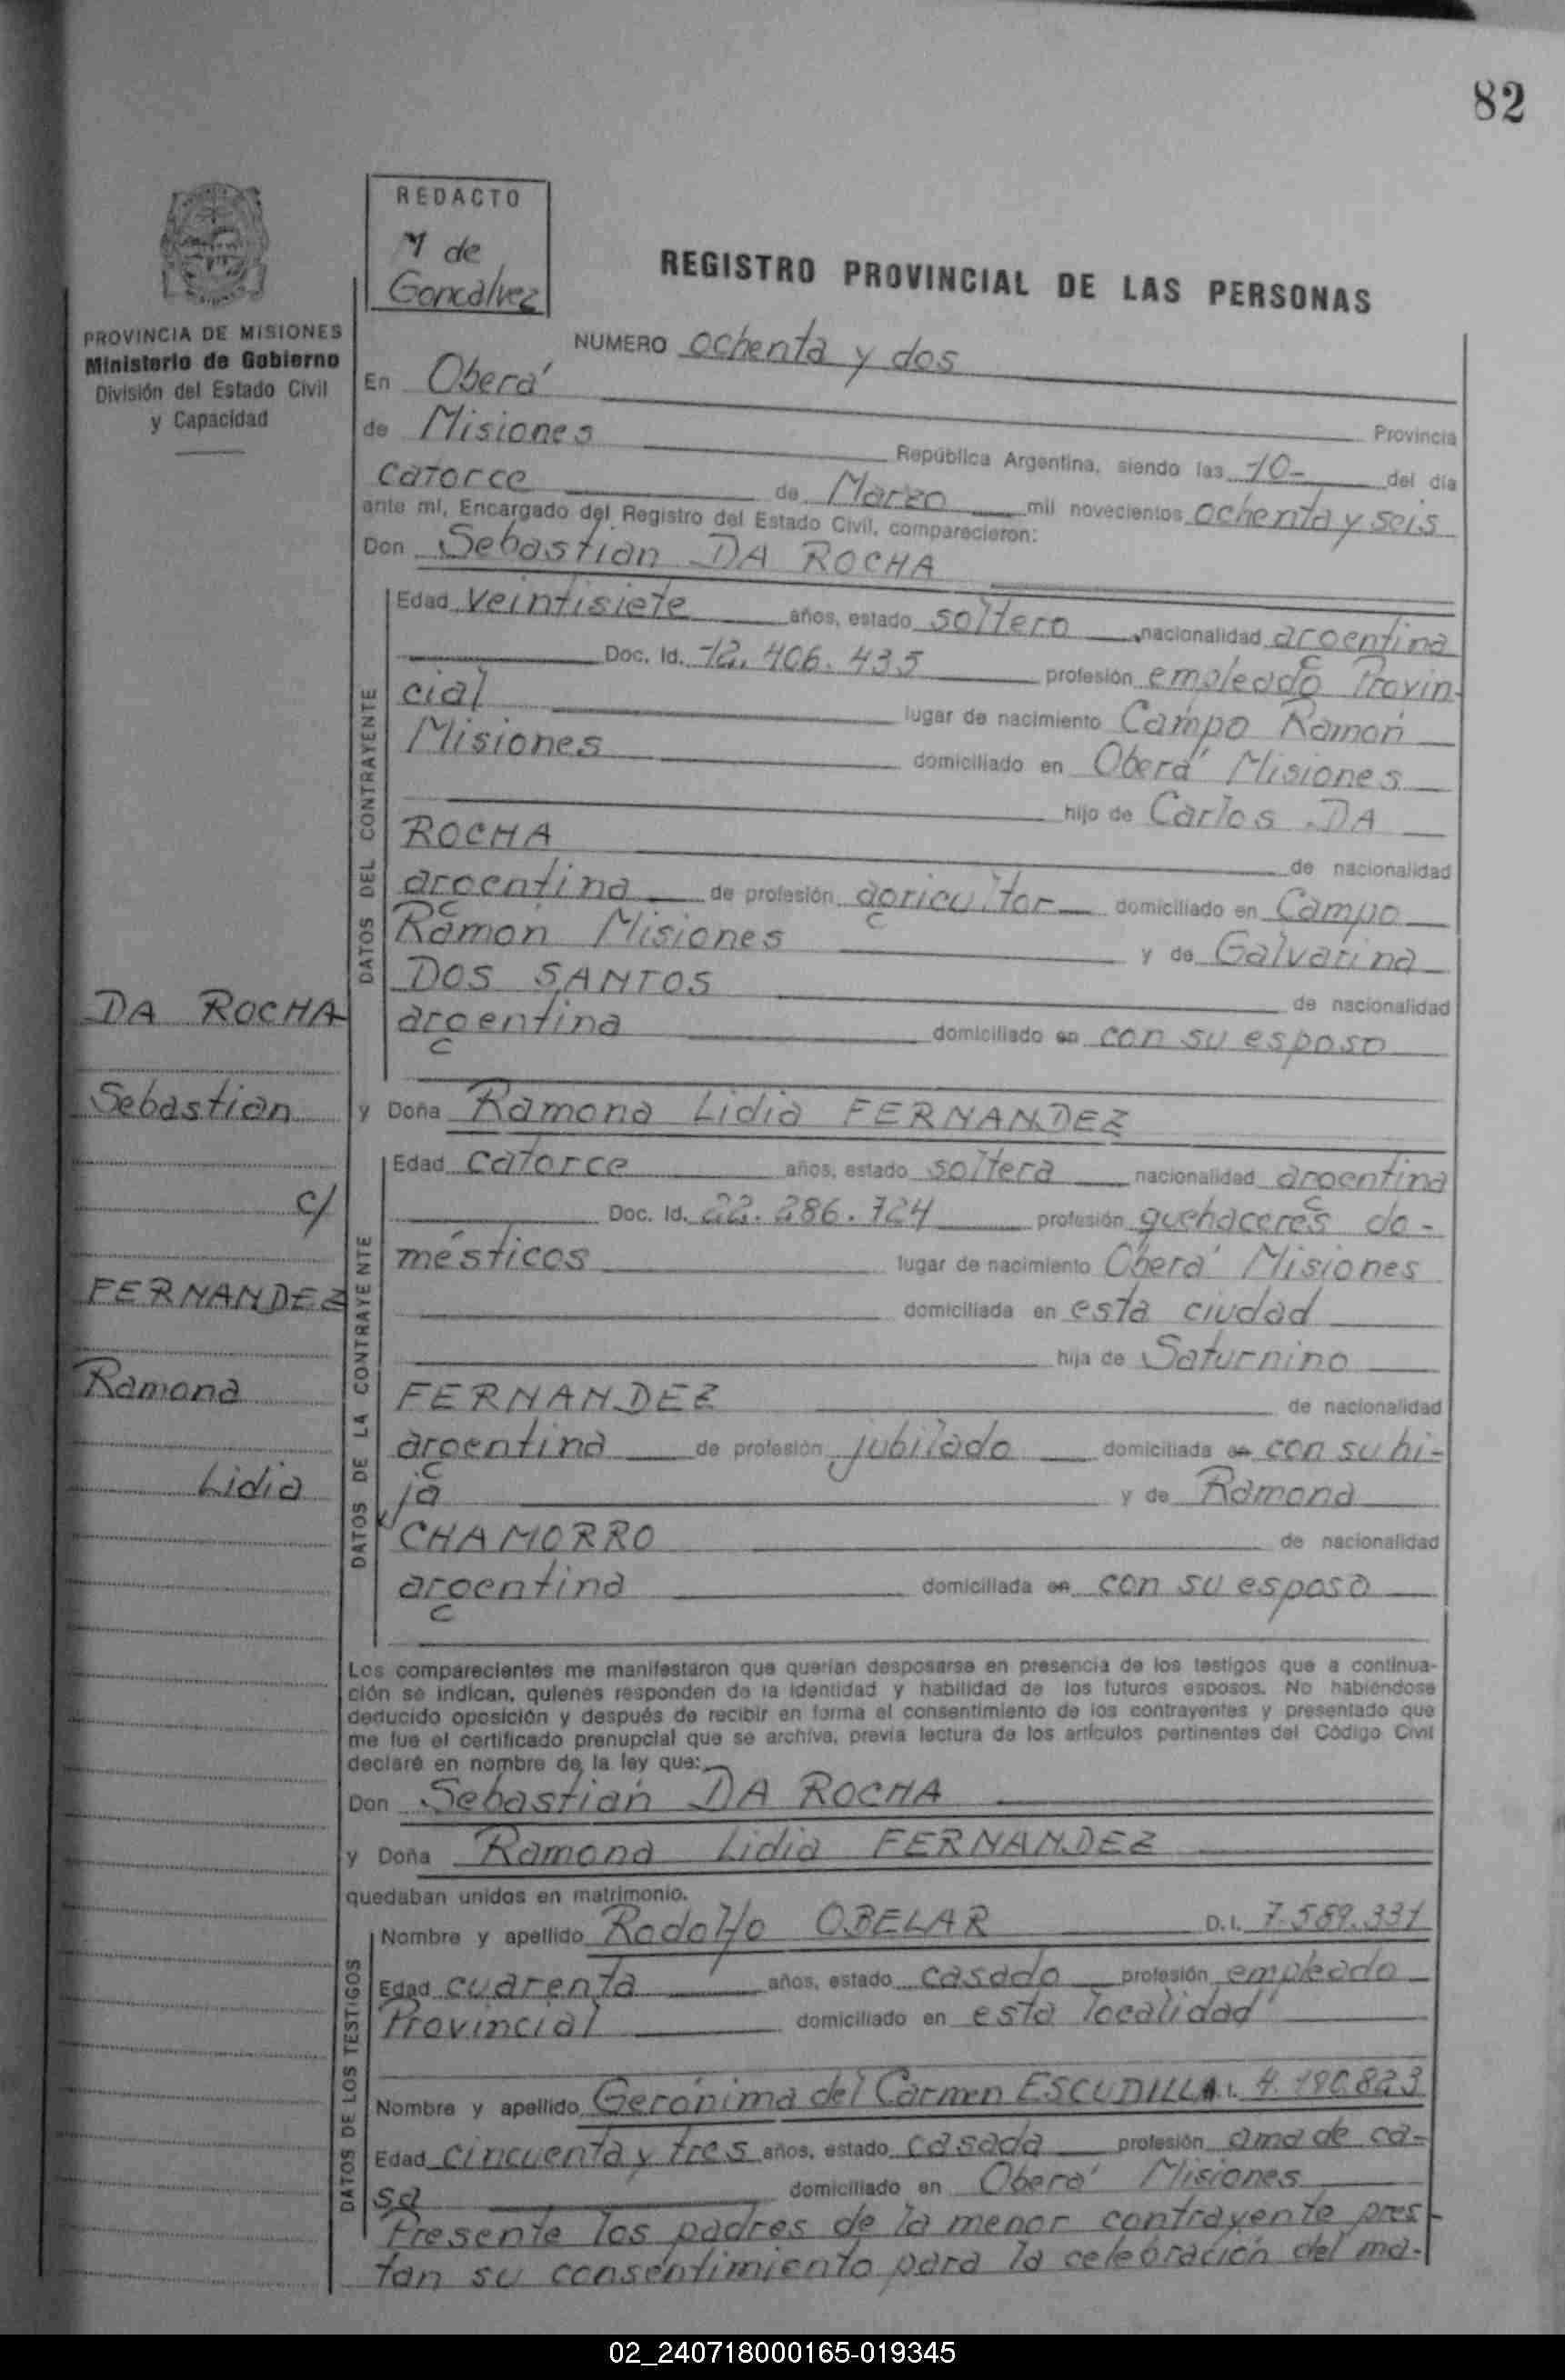 82
REDACTO
M de
Goncalvez
REGISTRO PROVINCIAL DE LAS PERSONAS
PROVINCIA DE MISIONES
Ministerio de Gobierno
División del Estado Civil
y Capacidad
NUMERO ochenta y dos
En Oberá Provincia
de Misiones República Argentina, siendo las 10- del día
catorce de Marzo mil novecientos ochenta y seis
ante mí, Encargado del Registro del Estado Civil, comparecieron:
Don Sebastian DA ROCHA
DATOS DEL CONTRAYENTE
Edad veintisiete años, estado soltero nacionalidad argentina
Doc. Id. 12.406.435 profesión empleado Provin-
cial lugar de nacimiento Campo Ramón
Misiones domiciliado en Oberá Misiones
hijo de Carlos DA
ROCHA de nacionalidad
argentina de profesión agricultor domiciliado en Campo
Ramón Misiones y de Galvarina
DOS SANTOS de nacionalidad
argentina domiciliado en con su esposo
DA ROCHA
Sebastian
c/
FERNANDEZ
Ramona
Lidia
y Doña Ramona Lidia FERNANDEZ
DATOS DE LA CONTRAYENTE
Edad catorce años, estado soltera nacionalidad argentina
Doc. Id. 22.286.724 profesión quehaceres do-
mésticos lugar de nacimiento Oberá Misiones
domiciliada en esta ciudad
hija de Saturnino
FERNANDEZ de nacionalidad
argentina de profesión jubilado domiciliada en con su hi-
ja y de Ramona
CHAMORRO de nacionalidad
argentina domiciliada en con su esposo
Los comparecientes me manifestaron que querían desposarse en presencia de los testigos que a continua-
ción se indican, quienes responden de la identidad y habilidad de los futuros esposos. No habiéndose
deducido oposición y después de recibir en forma el consentimiento de los contrayentes y presentado que
me fue el certificado prenupcial que se archiva, previa lectura de los artículos pertinentes del Código Civil
declaré en nombre de la ley que:
Don Sebastián DA ROCHA
y Doña Ramona Lidia FERNANDEZ
quedaban unidos en matrimonio.
DATOS DE LOS TESTIGOS
Nombre y apellido Rodolfo OBELAR D.I. 7.589.331
Edad cuarenta años, estado casado profesión empleado
Provincial domiciliado en esta localidad
Nombre y apellido Gerónima del Carmen ESCUDILLA I. 4.190823
Edad cincuenta y tres años, estado casada profesión ama de ca-
sa domiciliado en Oberá Misiones
Presente los padres de la menor contrayente pres
tan su consentimiento para la celebración del ma-
02_240718000165-019345